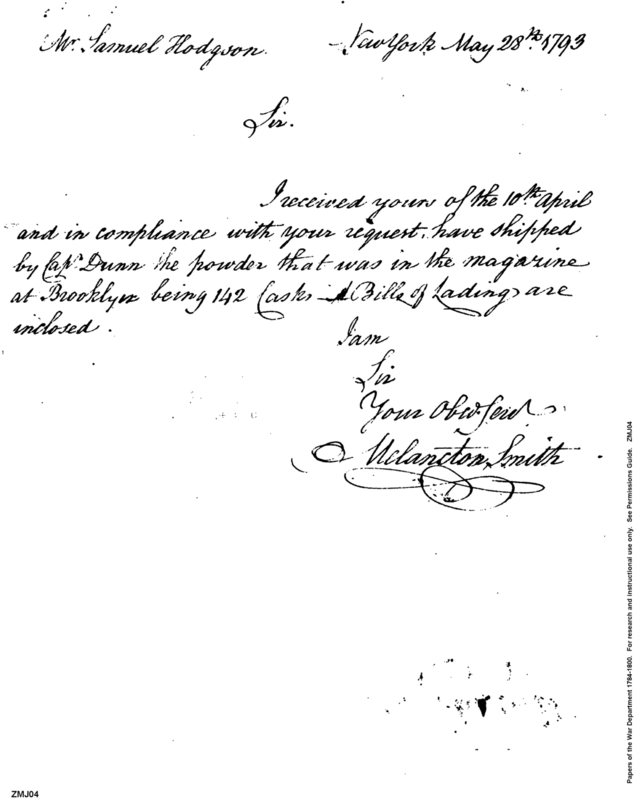 Mr. Samuel Hodgson. New York May 28th. 1793
Sir.
I received yours of the 10th April
and in compliance with your request, have shipped
by Capn. Dunn the powder that was in the magazine
at Brooklyn being 142 Casks - Bills of Lading are
inclosed.
I am
Sir
Your Obed. Servt
Melancton Smith
ZMJ04
Papers of the War Department 1784-1800. For research and instructional use only. See Permissions Guide. ZMJ04